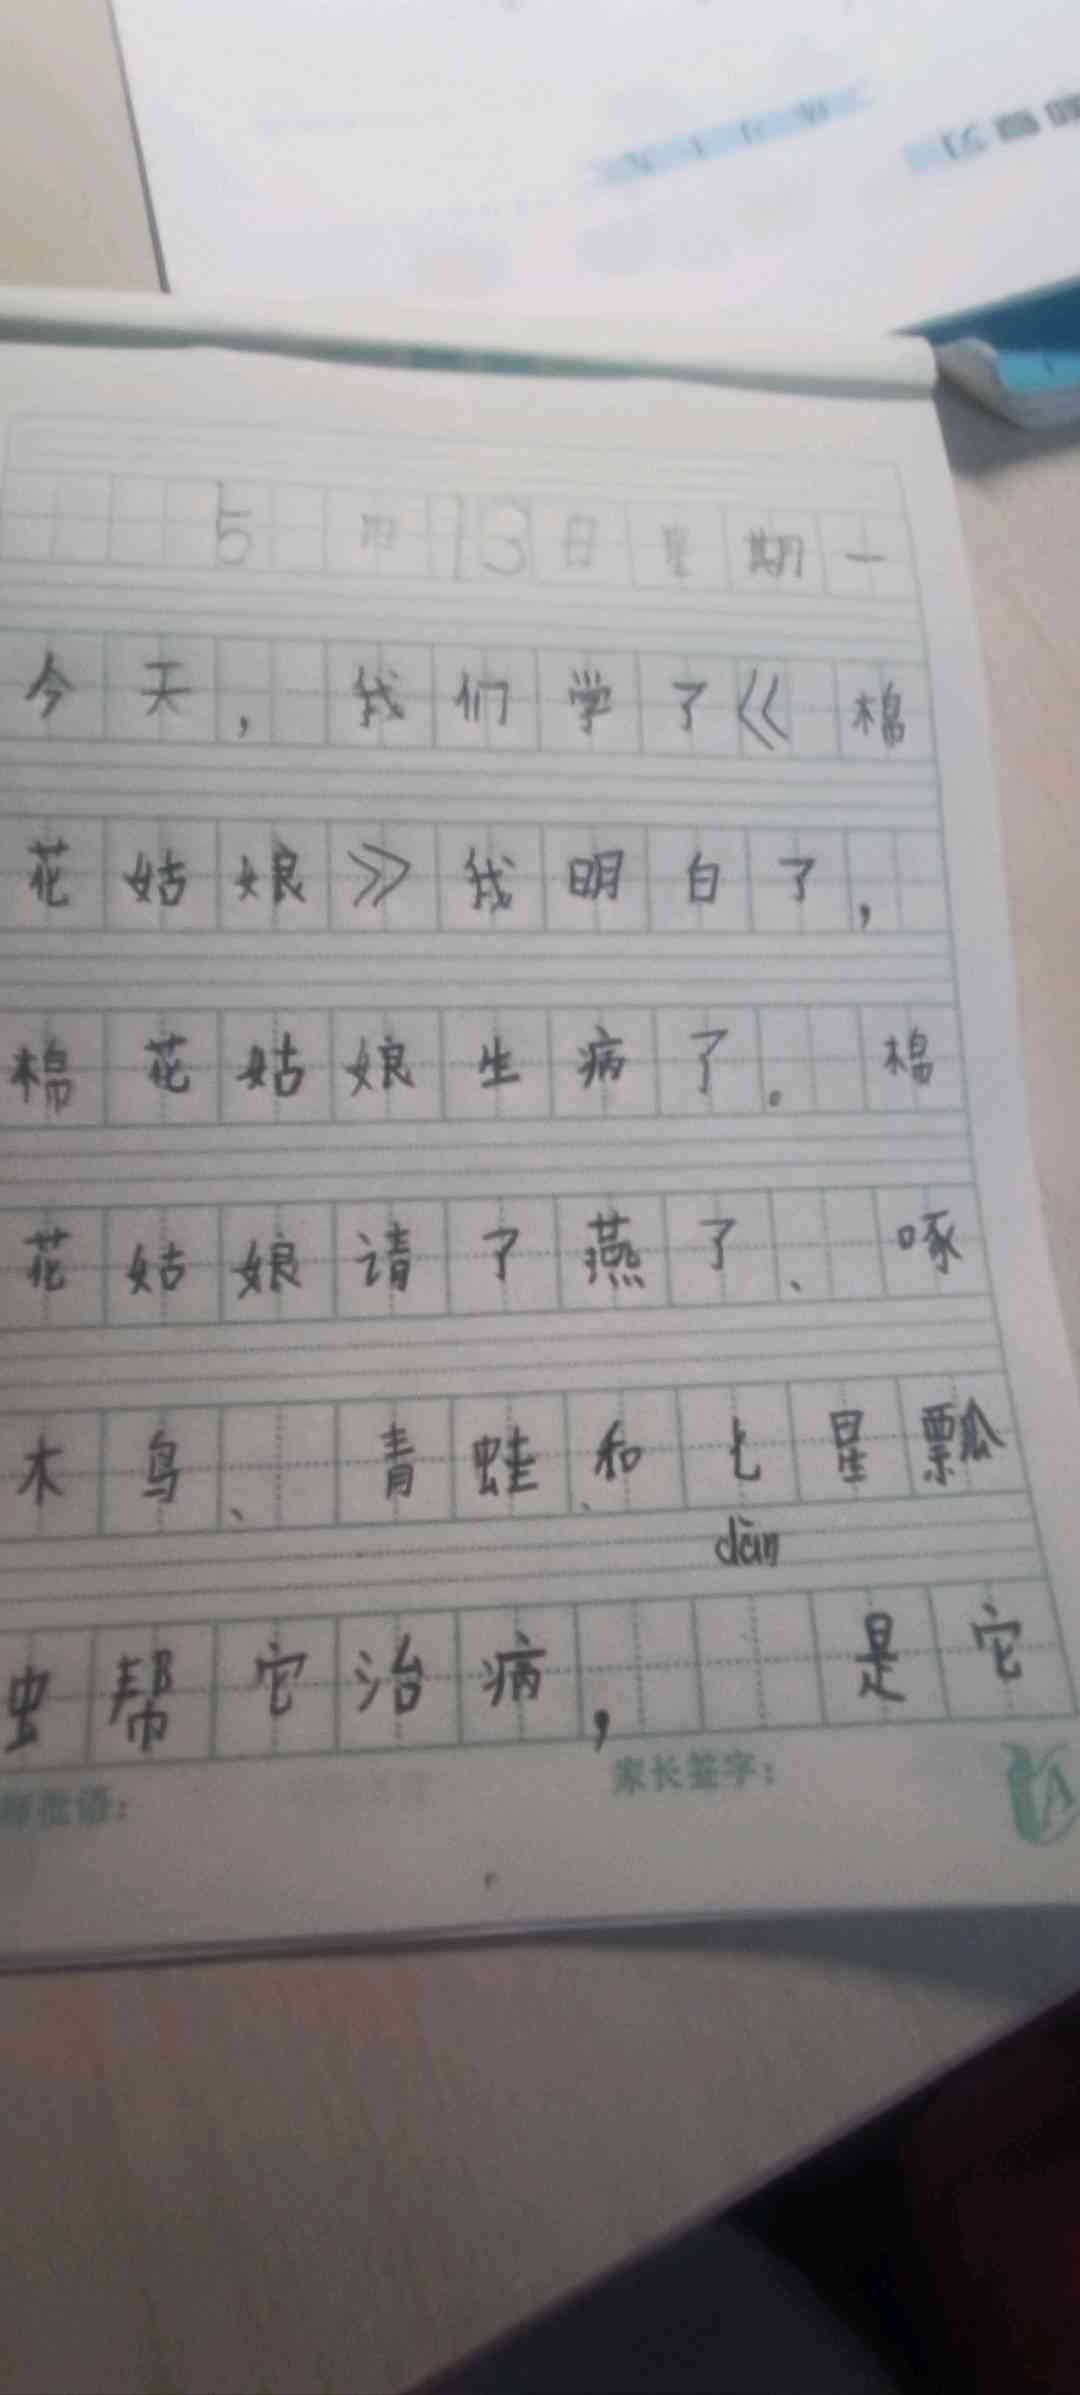 5月13日星期一
今天，我们学了《棉
花姑娘》我明白了，
棉花姑娘生病了。棉
花姑娘请了燕了、啄
木鸟、青蛙、和七星瓢
dàn
虫帮它治病，是它
师批语：
家长签字：